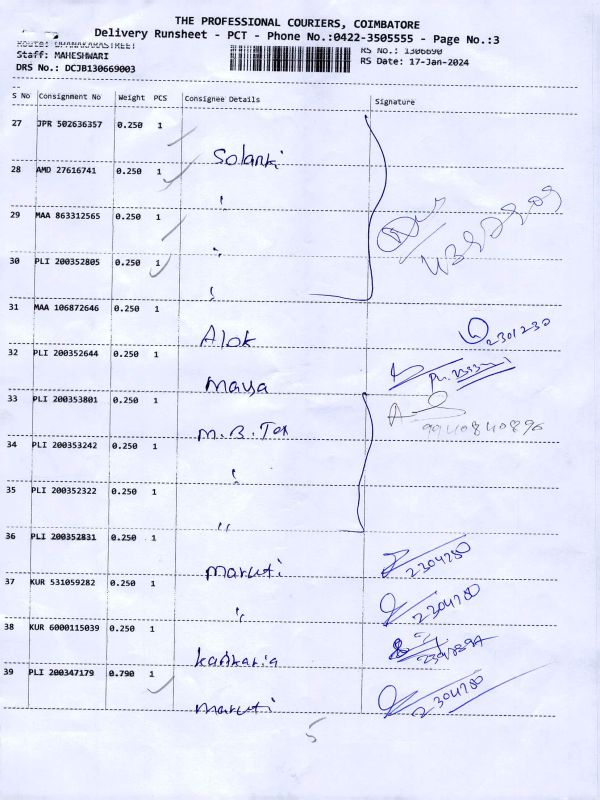 THE PROFESSIONAL COURIERS, COIMBATORE
Delivery Runsheet - PCT - Phone No.:0422-3505555 - Page No.:3
Route: UMANAKARASTREET RS No.: 1306690
Staff: MAHESHWARI RS Date: 17-Jan-2024
DRS No.: DCJB130669003
S No Consignment No Weight PCS Consignee Details Signature
27 JPR 502636357 0.250 1 Solanki
28 AMD 27616741 0.250 1 "
29 MAA 863312565 0.250 1 "
30 PLI 200352805 0.250 1 "
31 MAA 106872646 0.250 1 Alok 2301230
32 PLI 200352644 0.250 1 Maya
33 PLI 200353801 0.250 1 M.B. Tex 9940840896
34 PLI 200353242 0.250 1 "
35 PLI 200352322 0.250 1 "
36 PLI 200352831 0.250 1 maruti 2304780
37 KUR 531059282 0.250 1 " 2304780
38 KUR 6000115039 0.250 1 kankaria
39 PLI 200347179 0.790 1 maruti 2304780
5